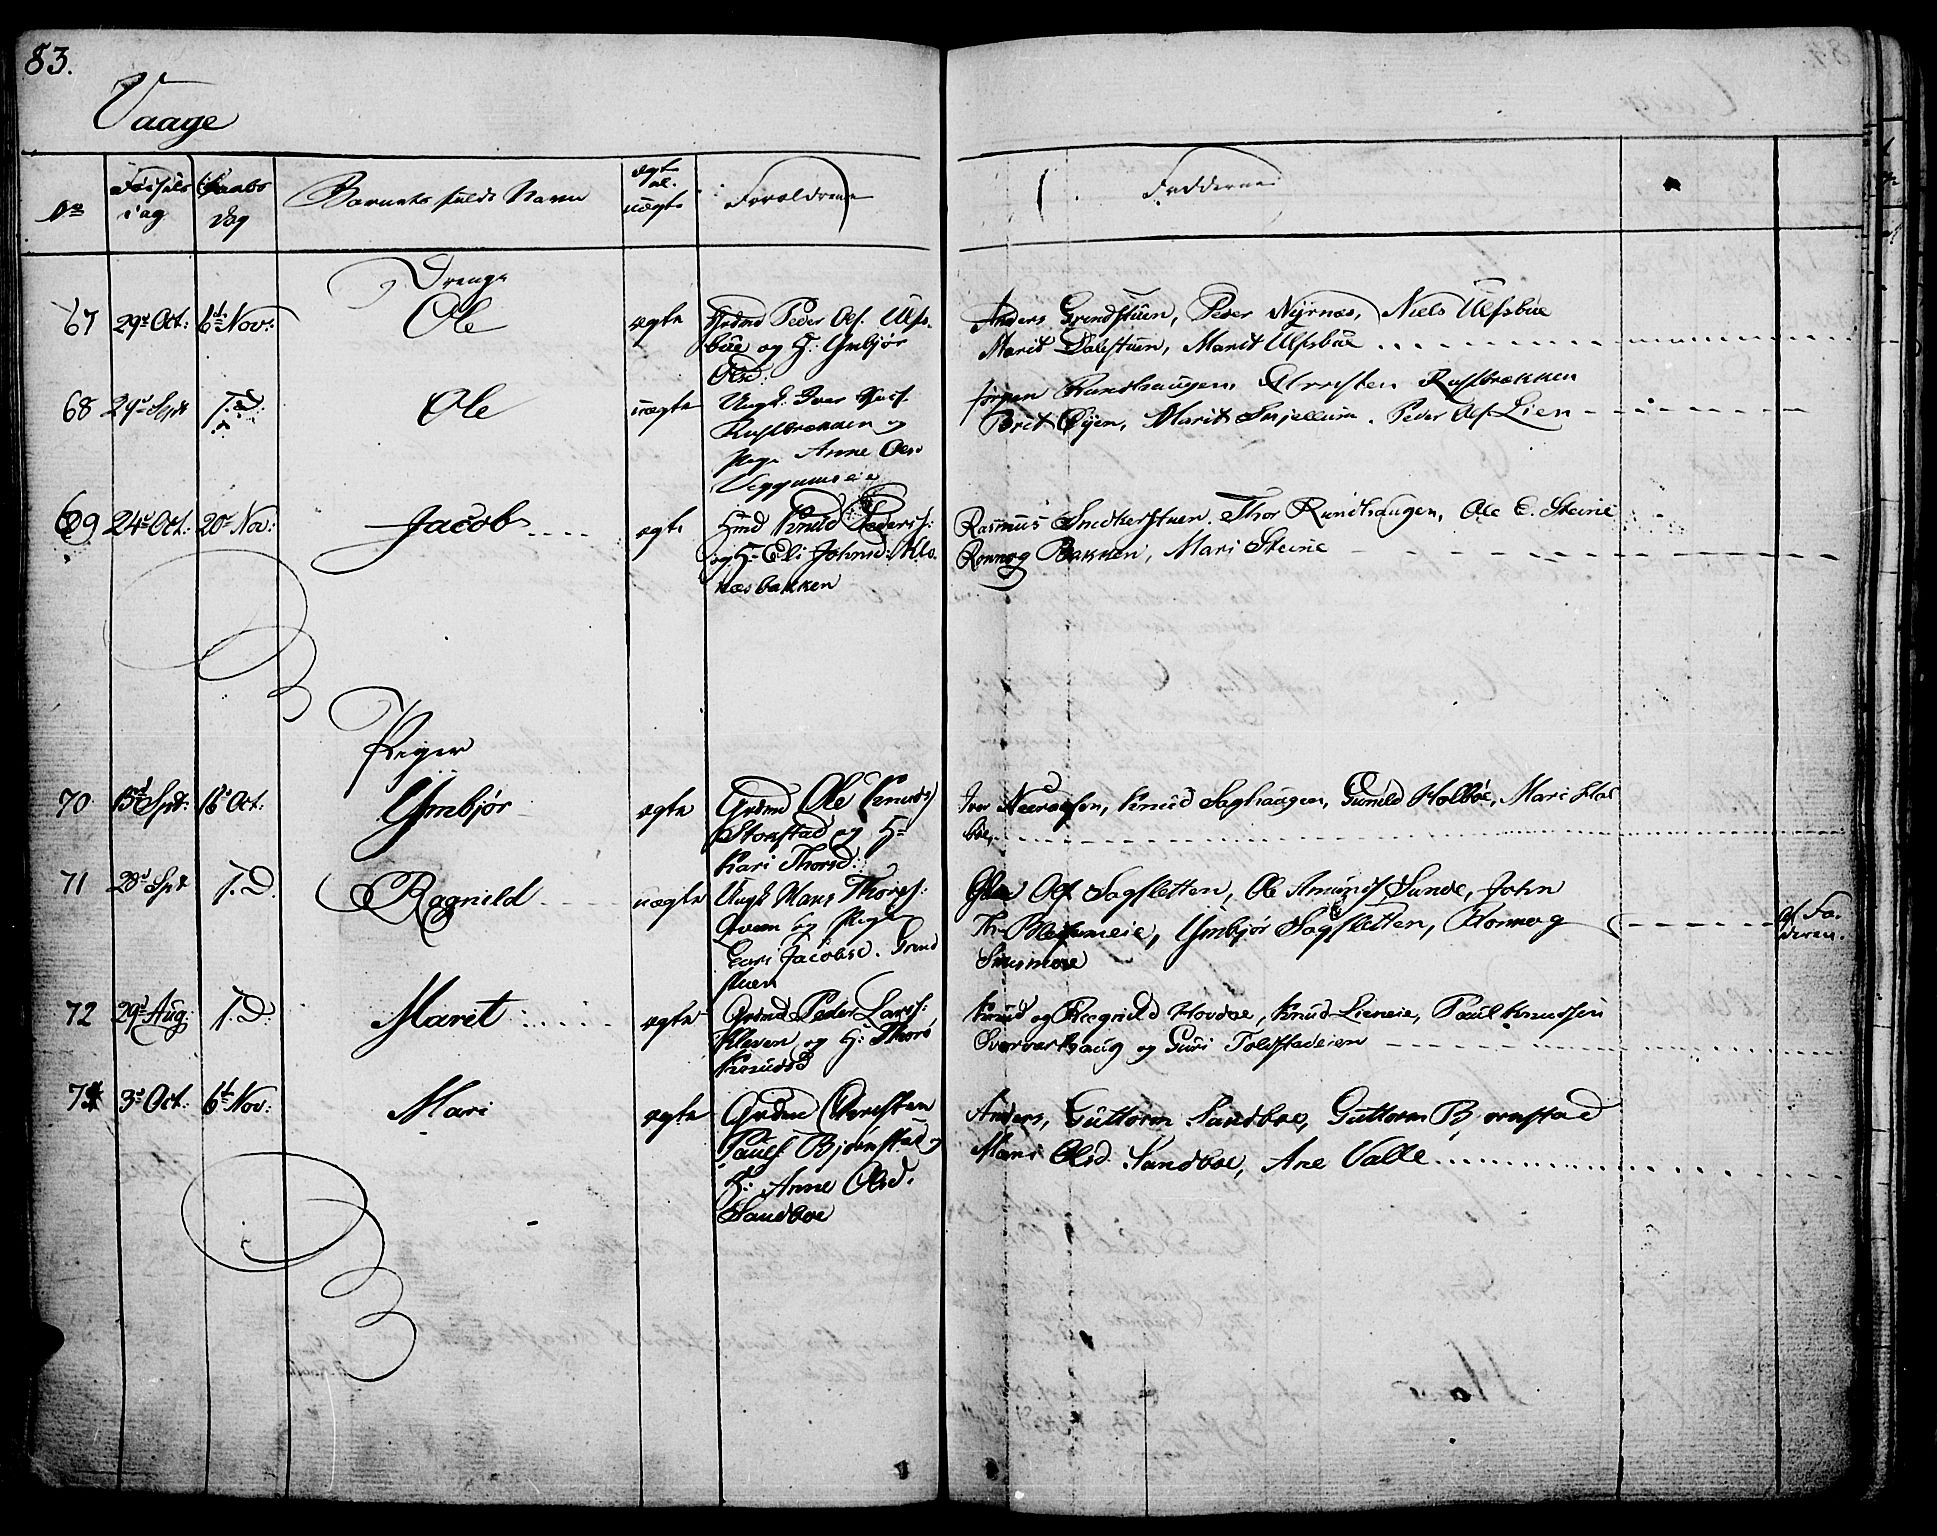 83.
Vaage
No
Fødsels
dag
Daabs
dag
Barnets fulde Navn
ægte
el.
uægte
Forældrene
Fadderne
Drenge
67 29d Oct: 6te Nov: Ole ægte Grdmd Peder Ols. Ulfs-
bue og H: Ymbjør
Olsd:
Anders Grindstuen, Peder Nyrnæs, Niels Ulfsbue
Marit Dalstuen, Marit Ulfsbue
68 29d Spt T.D: Ole uægte Ungk: Iver
Rustbrækken og
Pige Anne Olsd
Jørgen Rundhaugen, Rustbrækken
Brit Øyen, Marit Snjellum. Peder Ols. Lien
69 24d Oct: 20de Nov: Jacob ægte Hmd Knud Peders:
og H: Eli Johnsd: Klo-
næsbakken
Rasmus Snekkerstuen. Thor Rundhaugen, Ole E. Steine
Ronnog Bakken, Mari Steine
Piger
70 13d Spt: 16d Oct: Ymbjør ægte Grdmd Ole Knuds
Storstad og H:
Kari Thorsd:
Iver Knud Saghaugen, Gunild Holbøe, Mari Hol
bøe,
71 28d Spt T.D. Ragnild uægte Ungk Hans Thores:
Qvam og Pige
Guri Jacobsd. Grind
stuen
Ole Ols Sagfletten, Ole Amunds Sunde, John
Ymbjør Sagfletten, Ronnog
af Fa-
deren.
72 29d Aug: T.D: Marit ægte Grdmd Peder Lars:
Kleven og H: Thore
Knudsd
Knud og Ragnild Hovdee, Knud Lieneie, Paul Knudsen
Øvervarhaug og Guri Toldstadeien
73 3d Oct: 6te Nov: Mari ægte Grdmd Thorsten
Pauls. Bjørnstad og
H: Anne Olsd.
Sandboe
Anders, Guttorm Sandboe, Guttorm Bjørnstad
Mari Olsd. Sandboe, Ane Valle